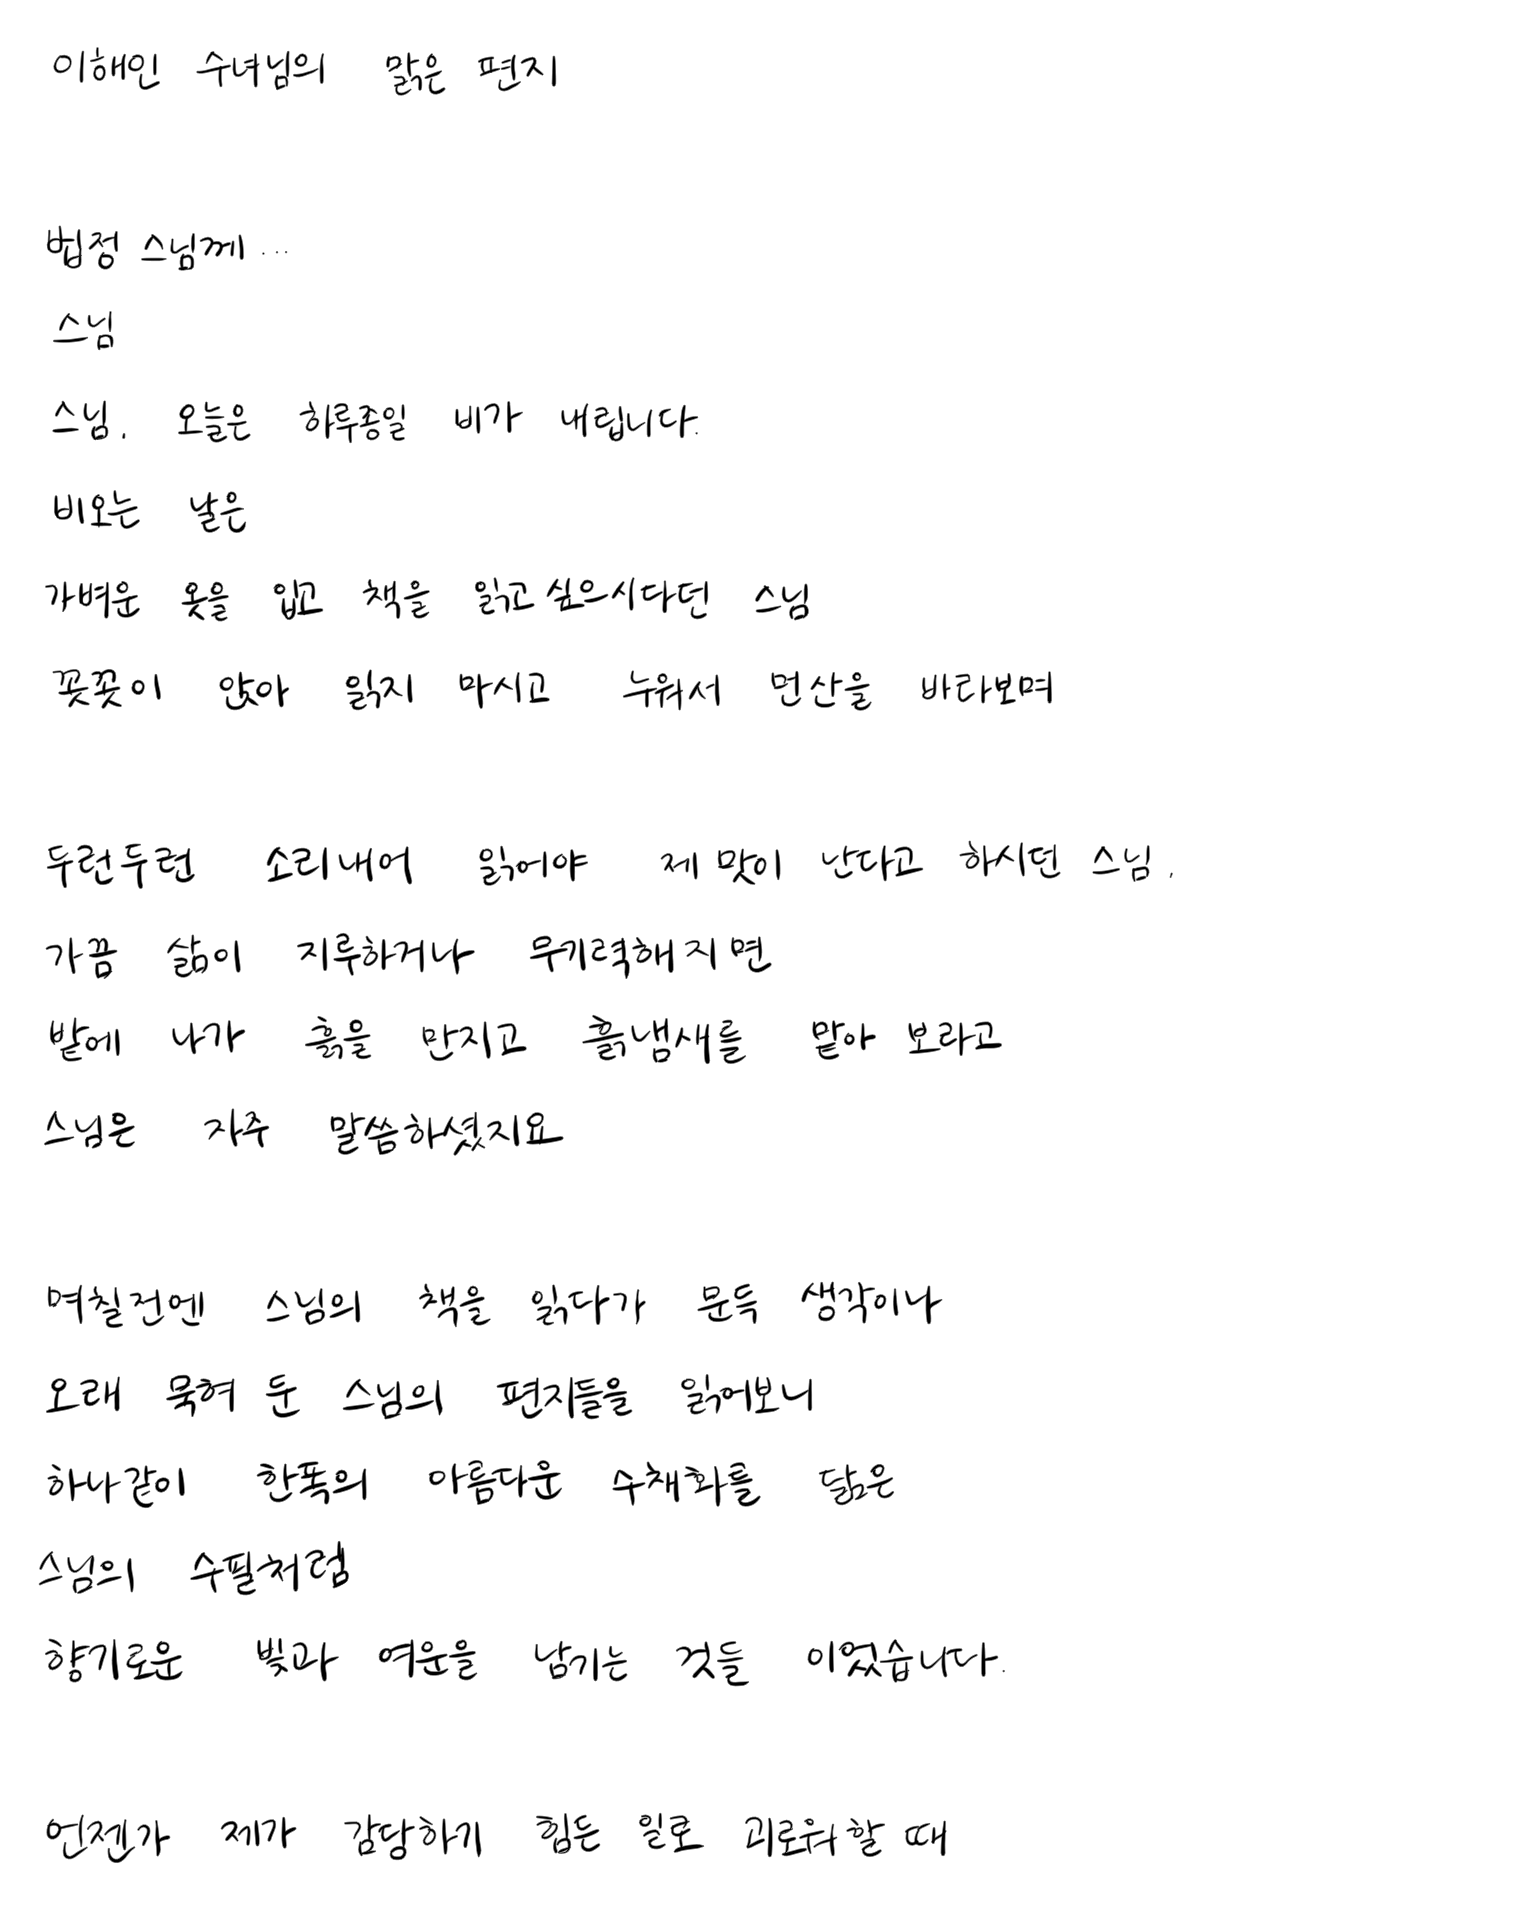 이해인 수녀님의 맑은 편지
법정 스님께...
스님
스님. 오늘은 하루종일 비가 내립니다.
비오는 날은
가벼운 옷을 입고 책을 읽고 싶으시다던 스님
꼿꼿이 앉아 읽지 마시고 누워서 먼산을 바라보며
두런두런 소리내어 읽어야 제 맛이 난다고 하시던 스님.
가끔 삶이 지루하거나 무기력해지면
밭에 나가 흙을 만지고 흙냄새를 맡아 보라고
스님은 자주 말씀하셨지요
며칠전엔 스님의 책을 읽다가 문득 생각이나
오래 묵혀 둔 스님의 편지들을 읽어보니
하나같이 한폭의 아름다운 수채화를 닮은
스님의 수필처럼
향기로운 빛과 여운을 남기는 것들 이었습니다.
언젠가 제가 감당하기 힘든 일로 괴로워할 때